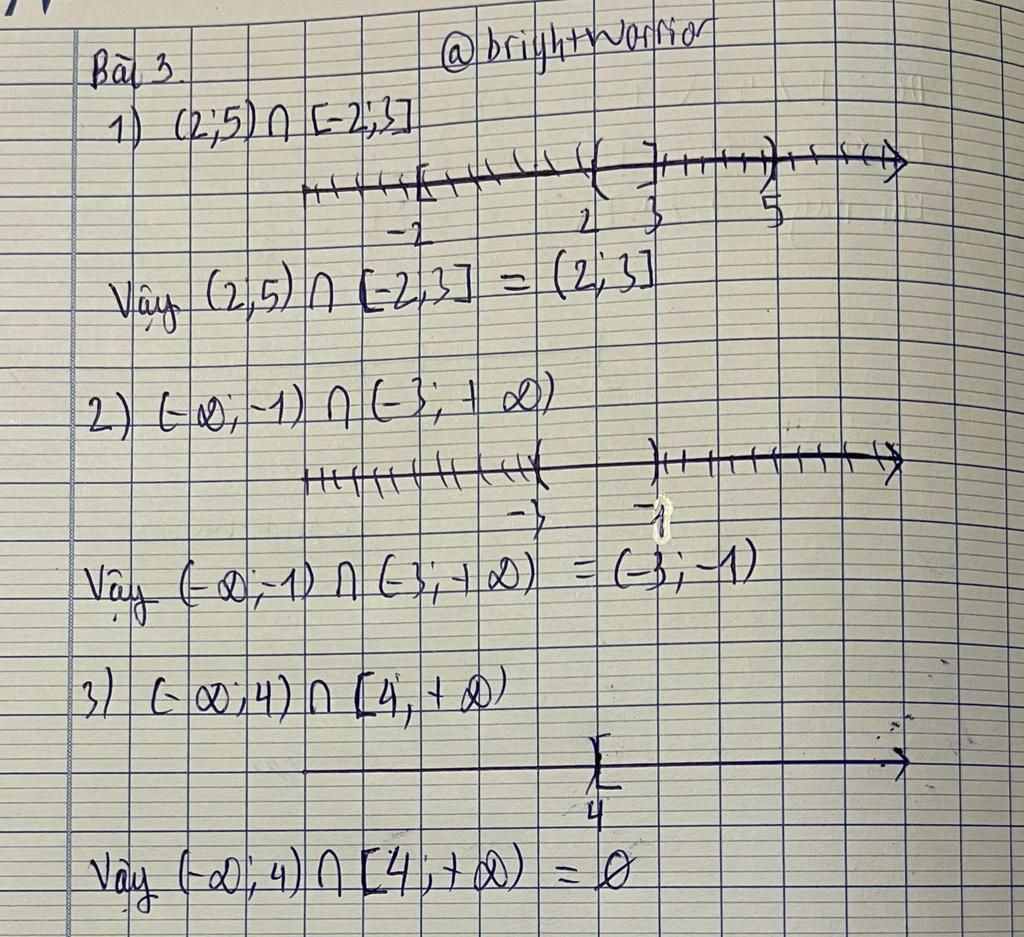 @brightwarrior
Bài 3.
1) (2;5) ∩ [-2;3]
-2 2 3 5
Vậy (2;5) ∩ [-2;3] = (2;3]
2) (-∞;-1) ∩ (-3;+∞)
-3 -1
Vậy (-∞;-1) ∩ (-3;+∞) = (-3;-1)
3) (-∞;4) ∩ [4;+∞)
4
Vậy (-∞;4) ∩ [4;+∞) = ∅